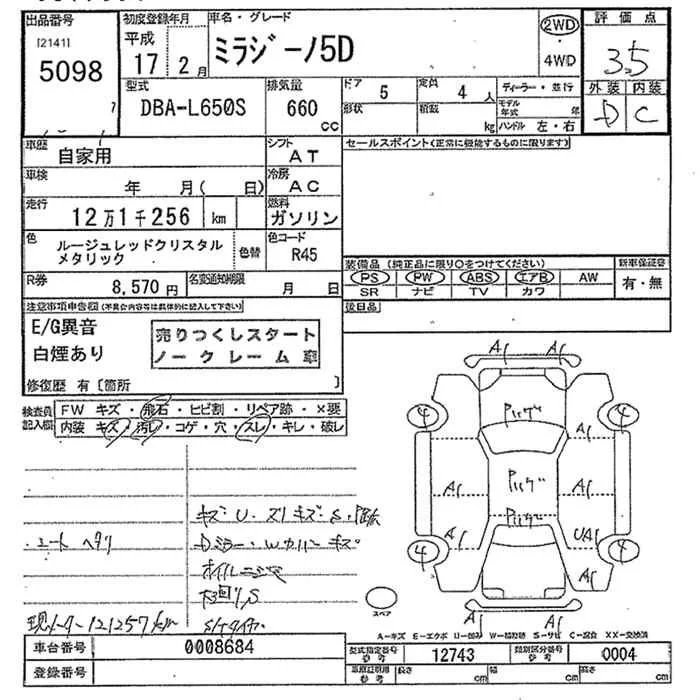 出品番号
[2141]
5098
初度登録年月
平成
17 2月
車名・グレード
ミラジーノ5D
2WD
4WD
評価点
3.5
外装 内装
D C
型式
DBA-L650S
排気量
660
cc
ドア
5
定員
4人
形状
積載
kg
ディーラー・並行
モデル年式 年
ハンドル 左・右
車歴
自家用
シフト
AT
セールスポイント(正常に機能するものに限ります)
車検
年 月( 日)
冷房
AC
走行
12万1千256 km
燃料
ガソリン
色
ルージュレッドクリスタル
メタリック
色替
色コード
R45
R券
8,570円
名変通知期限
月 日
装備品(純正品に限り○をつけてください)
PS PW ABS エアB AW
SR ナビ TV カワ
新車保証書
有・無
後日品
注意事項申告欄(不具合内容等は具体的に記入して下さい)
E/G異音
白煙あり
売りつくしスタート
ノークレーム車
修復歴 有〔箇所 〕
検査員
記入欄
FW キズ・飛石・ヒビ割・リペア跡・×要
内装 キズ・汚レ・コゲ・穴・スレ・キレ・破レ
A1 A1
4 4
A1
A1 A1
A1 UA1
4 4
A1
A1 A1
シートヘタリ
オイルニジミ
現メーター121257km
スペア
A-キズ E-エクボ U-凹み W-補修跡 S-サビ C-腐食 XX-交換済
車台番号
0008684
登録番号
型式指定番号
参考
12743
類別区分番号
参考
0004
長さ cm
幅 cm
高さ cm